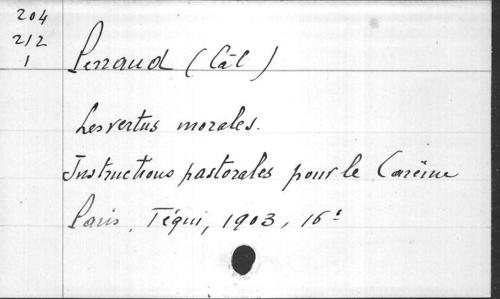 204
212
1
Perraud (Cāl)
Les vertus morales.
Instructions pastorales pour le Carême
Paris, Téqui, 1903, 16º